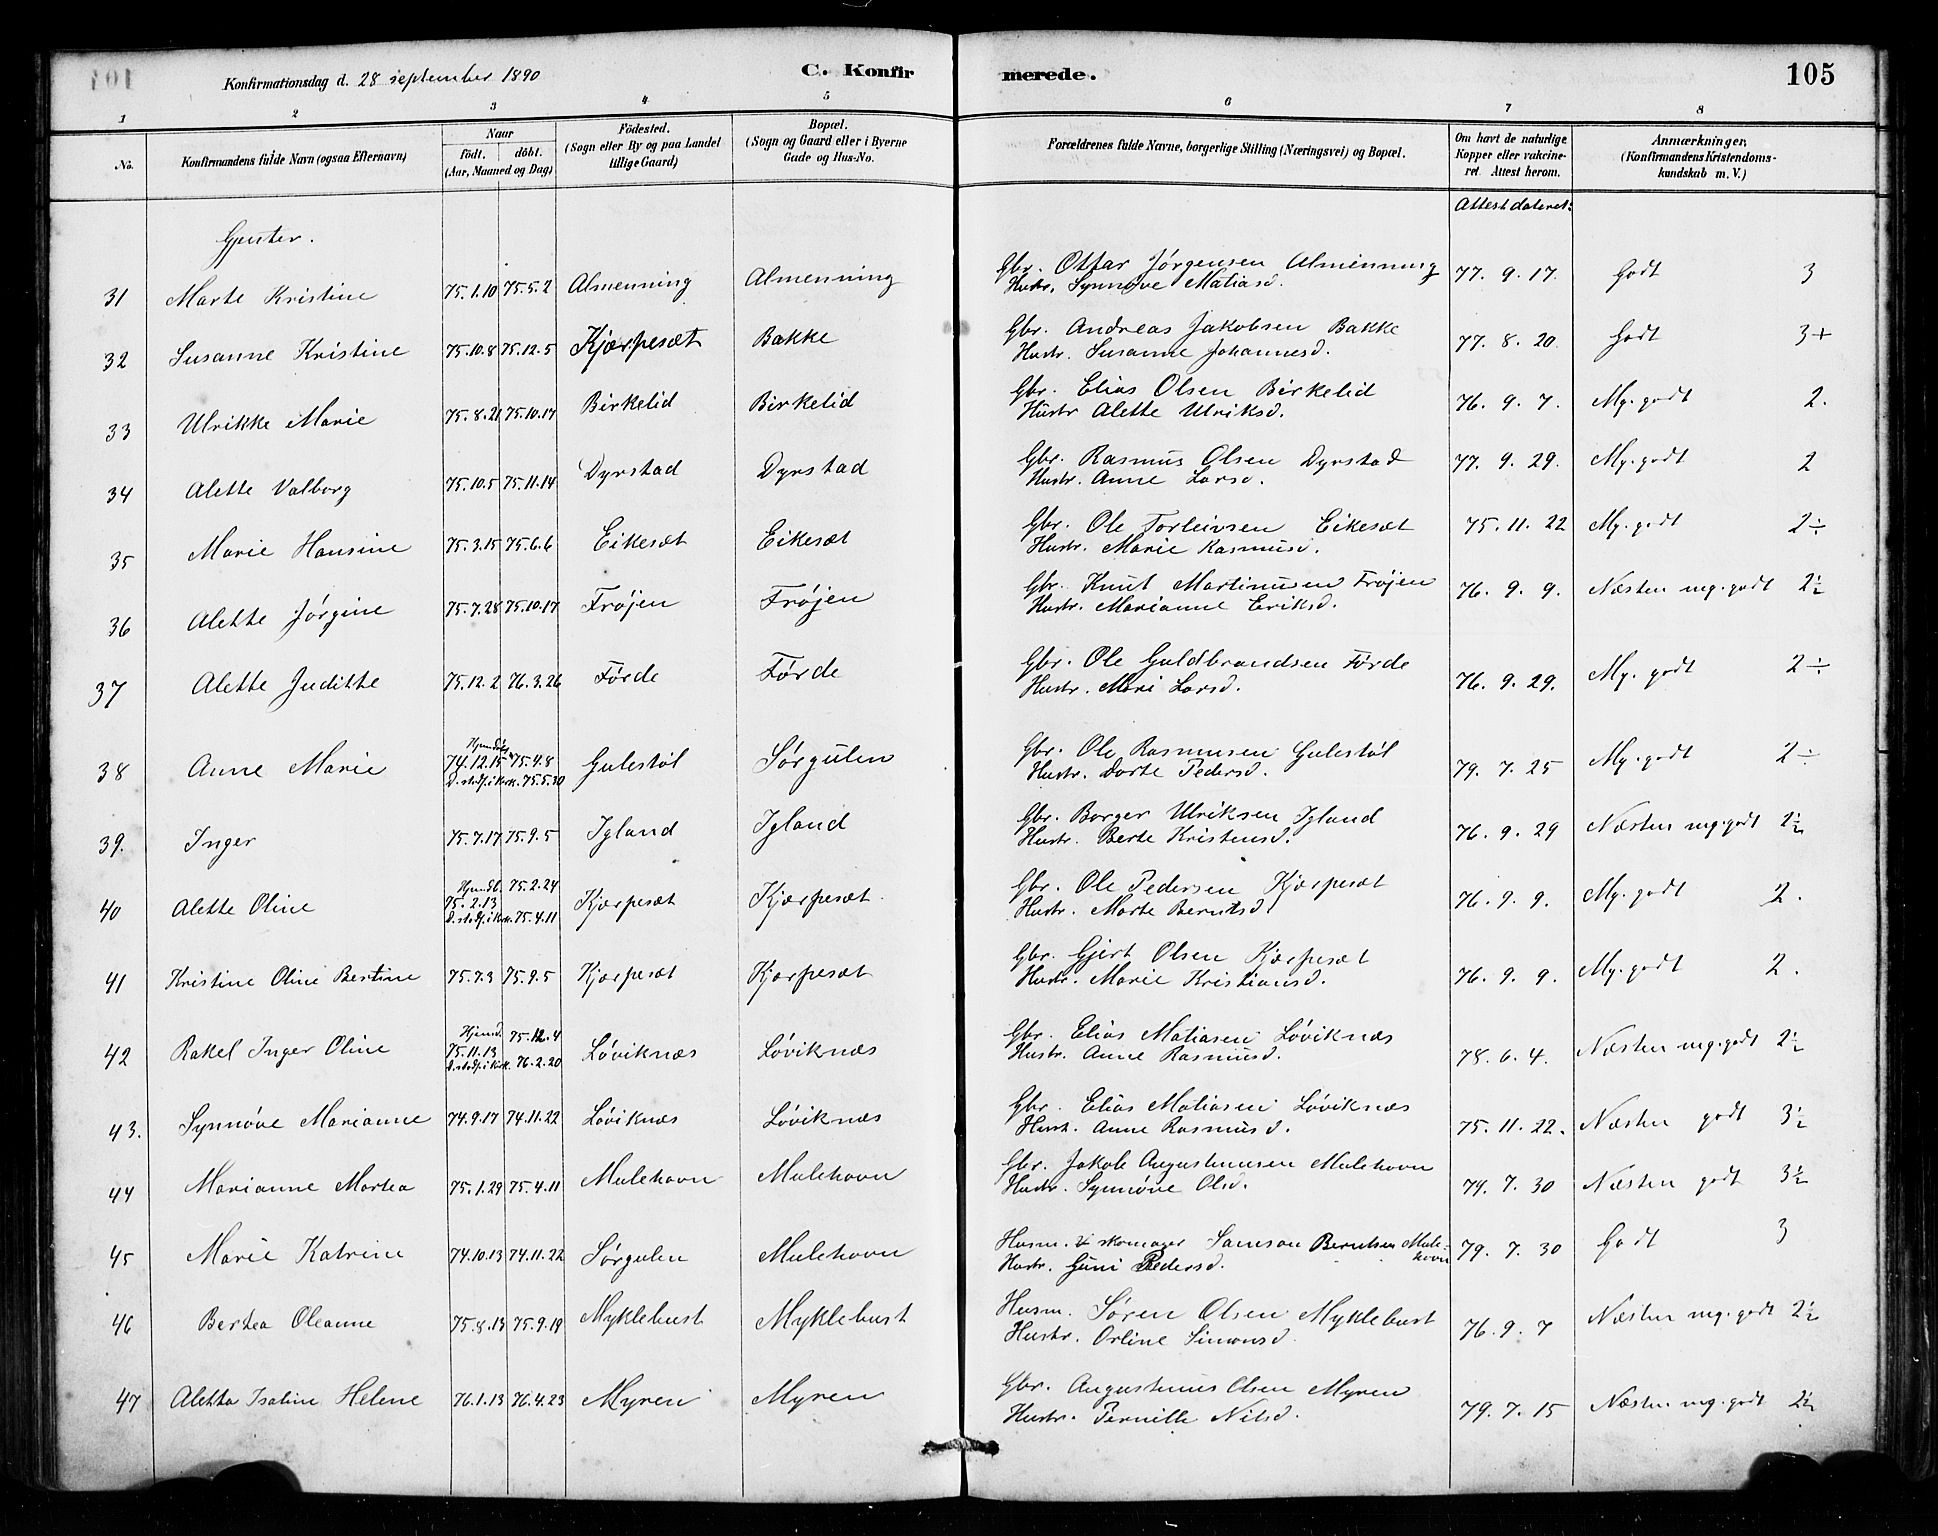 Konfirmationsdag d. 28 september 1890 C. Konfirmerede. 105
1 2 3 4 5 6 7 8
No. Konfirmandens fulde Navn (ogsaa Efternavn) Naar født. (Aar, Maaned og Dag) døbt. Fødested. (Sogn eller By og paa Landet tillige Gaard) Bopæl. (Sogn og Gaard eller i Byerne Gade og Hus-No. Forældrenes fulde Navne, borgerlige Stilling (Næringsvei) og Bopæl. Om havt de naturlige Kopper eller vakcineret. Attest herom. Anmærkninger, (Konfirmandens Kristendomskundskab m. V.)
Attest dateret:
Gjenter.
31 Marte Kristine 75.1.10 75.5.2 Almenning Almenning Gbr. Otfar Jørgensen Almenning 77. 9. 17. Godt 3
Hustr. Synnøve Matiasd.
32 Susanne Kristine 75.10.8 75.12.5 Kjærpesæt Bakke Gbr. Andreas Jakobsen Bakke 77. 8. 20. Godt 3+
Hustr. Susanne Johannesd.
33 Ulrikke Marie 75.8.21 75.10.17 Birkelid Birkelid Gbr. Elias Olsen Birkelid 76. 9. 7. Mg. godt 2.
Hustr Alette Ulriksd.
34 Alette Valborg 75.10.5 75.11.14 Dyrstad Dyrstad Gbr. Rasmus Olsen Dyrstad 77. 9. 29. Mg. godt 2
Hustr. Anne Larsd.
35 Marie Hansine 75.3.15 75.6.6 Eikesæt Eikesæt Gbr. Ole Torleivsen Eikesæt 75. 11. 22 Mg. godt 2÷
Hustr. Marie Rasmusd.
36 Alette Jørgine 75.7.28 75.10.17 Frøjen Frøjen Gbr. Knut Martinusen Frøjen 76. 9. 9. Næsten mg. godt 2½
Hustr. Marianne Eriksd.
37 Alette Juditte 75.12.2 76.3.26 Førde Førde Gbr. Ole Guldbrandsen Førde 76. 9. 29. Mg. godt 2÷
Hustr. Mari Larsd.
38 Anne Marie 74.12.15 75.4.8 D. stadf. i Kirk. 75.5.30 Gulestøl Sørgulen Gbr. Ole Rasmusen Gulestøl 79. 7. 25 Mg. godt 2÷
Hustr. Dorte Pedersd.
39. Inger 75.7.17 75.9.5 Igland Igland Gbr. Borger Ulriksen Igland 76. 9. 29 Næsten mg. godt 2½
Hustr. Berte Kristensd.
40 Alette Oline Hjemdb. 75.2.24 75.2.13 D. stadf. i Kirk. 75.4.11 Kjærpesæt Kjærpesæt Gbr. Ole Pedersen Kjærpesæt 76. 9. 9. Mg. godt 2.
Hustr. Marte Berntsd.
41 Kristine Oline Bertine 75.7.3 75.9.5 Kjærpesæt Kjærpesæt Gbr. Gjert Olsen Kjærpesæt 76. 9. 9. Mg. godt 2.
Hustr. Marie Kristiansd.
42 Rakel Inger Oline Hjemd. 75.12.4 75.11.13 D. stadf. i Kirk. 76.2.20 Løviknæs Løviknæs Gbr. Elias Matiasen Løviknæs 78. 6. 4. Næsten mg. godt 2½
Hustr. Anne Rasmusd.
43. Synnøve Marianne 74.9.17 74.11.22 Løviknæs Løviknæs Gbr. Elias Matiasen Løviknæs 75. 11. 22. Næsten godt 3½
Hustr. Anne Rasmusd.
44 Marianne Martea 75.1.29 75.4.11 Mulehavn Mulehavn Gbr. Jakob Augustinusen Mulehavn 79. 7. 30 Næsten godt 3½
Hustr. Synnøve Olsd.
45 Marie Katrine 74.10.13 74.11.22 Sørgulen Mulehavn Husm. & skomager Samson Berntsen Mulehavn 79. 7. 30 Godt 3
Hustr. Guni Pedersd.
46 Bertea Oleanne 75.8.13 75.9.19 Myklebust Myklebust Husm. Søren Olsen Myklebust 76. 9. 7 Næsten mg. godt 2½
Hustr. Orline Simonsd.
47 Aletta Isaline Helene 76.1.13 76.4.23 Myren Myren Gbr. Augustinus Olsen Myren 79. 7. 15 Næsten mg. godt 2½
Hustr. Pernille Nilsd.